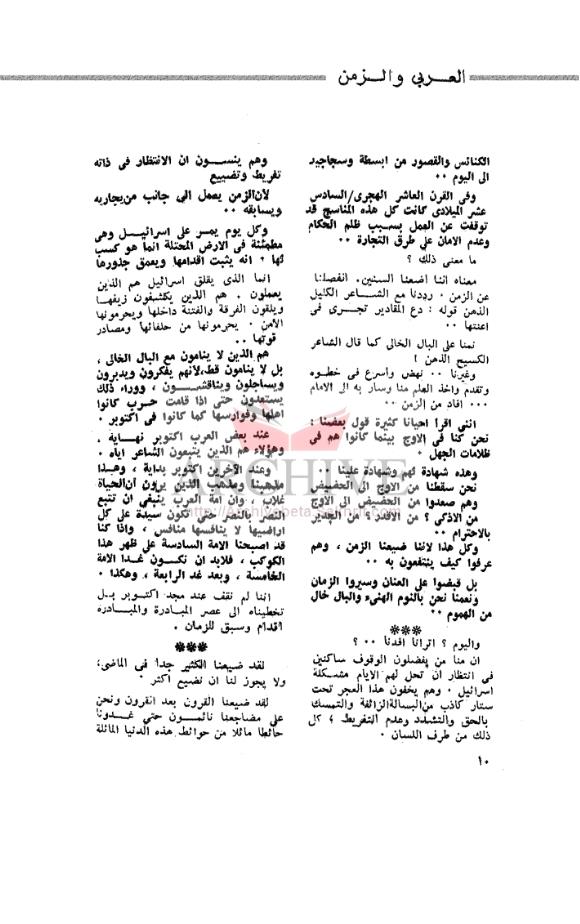 العربي والزمن
الكنائس والقصور من ابسطة وسجاجيد
الى اليوم ..
وفى القرن العاشر الهجرى/السادس
عشر الميلادى كانت كل هذه المناسج قد
توقفت عن العمل بسبب ظلم الحكام
وعدم الامان على طرق التجارة ..
ما معنى ذلك ؟
معناه اننا أضعنا السنين. انفصلنا
عن الزمن . رددنا مع الشاعر الكليل
الذهن قوله : دع المقادير تجرى فى
اعنتها ..
نمنا على البال الخالى كما قال الشاعر
الكسيح الذهن !
وغيرنا .. نهض وأسرع فى خطوه
وتقدم واخذ العلم منا وسار به الى الامام
... افاد من الزمن ..
اننى اقرأ احيانا كثيرة قول بعضنا :
نحن كنا فى الاوج بينما كانوا هم فى
ظلامات الجهل .
وهذه شهادة لهم وشهادة علينا
نحن سقطنا من الاوج الى الحضيض
وهم صعدوا من الحضيض الى الاوج
من الاذكى ؟ من الاقدر ؟ من الجدير
بالاحترام ..
وكل هذا لاننا ضيعنا الزمن ، وهم
عرفوا كيف ينتفعون به ..
بل قبضوا على العنان وسيروا الزمان
ونعمنا نحن بالنوم الهنىء والبال خال
من الهموم ..
***
واليوم ؟ اترانا افدنا .. ؟
ان منا من يفضلون الوقوف ساكنين
فى انتظار ان تحل لهم الايام مشكلة
اسرائيل . وهم يخفون هذا العجز تحت
ستار كاذب من البسالة الزائفة والتمسك
بالحق والتشدد وعدم التفريط ، كل
ذلك من طرف اللسان .
وهم ينسون ان الانتظار فى ذاته
تفريط وتضييع
لأن الزمن يعمل الى جانب من يجاريه
ويسابقه ..
وكل يوم يمر على اسرائيل وهى
مطمئنة فى الارض المحتلة انما هو كسب
لها ، انه يثبت اقدامها ويعمق جذورها
انما الذى يقلق اسرائيل هم الذين
يعملون . هم الذين يكشفون زيفها
ويلقون الفرقة والفتنة داخلها ويحرمونها
الأمن . يحرمونها من حلفائها ومصادر
قوتها ..
هم الذين لا ينامون مع البال الخالى ،
بل لا ينامون قط، لأنهم يفكرون ويدبرون
ويساجلون ويناقشون ، ووراء ذلك
يستعدون حتى اذا قامت حرب كانوا
اهلها وفوارسها كما كانوا فى اكتوبر .
عند بعض العرب اكتوبر نهاية .
وهؤلاء هم الذين يتبعون الشاعر اياه .
وعند الآخرين اكتوبر بداية ، وهذا
مذهبنا ومذهب الذين يرون ان الحياة
غلاب ، وان امة العرب ينبغى ان تتبع
النصر بالنصر حتى تكون سيدة على كل
اراضيها لا ينافسها منافس ، واذا كنا
قد اصبحنا الامة السادسة على ظهر هذا
الكوكب ، فلابد ان نكون غدا الامة
الخامسة ، وبعد غد الرابعة ، وهكذا .
اننا لم نقف عند مجد اكتوبر بل
تخطيناه الى عصر المبادرة والمبادره
اقدام وسبق للزمان .
***
لقد ضيعنا الكثير جدا فى الماضى،
ولا يجوز لنا ان نضيع اكثر .
لقد ضيعنا القرون بعد القرون ونحن
على مضاجعنا نائمون حتى غدونا
حائطا مائلا من حوائط هذه الدنيا المائلة
١٠
ARCHIVE
http://Archivebeta.Sakhrit.com